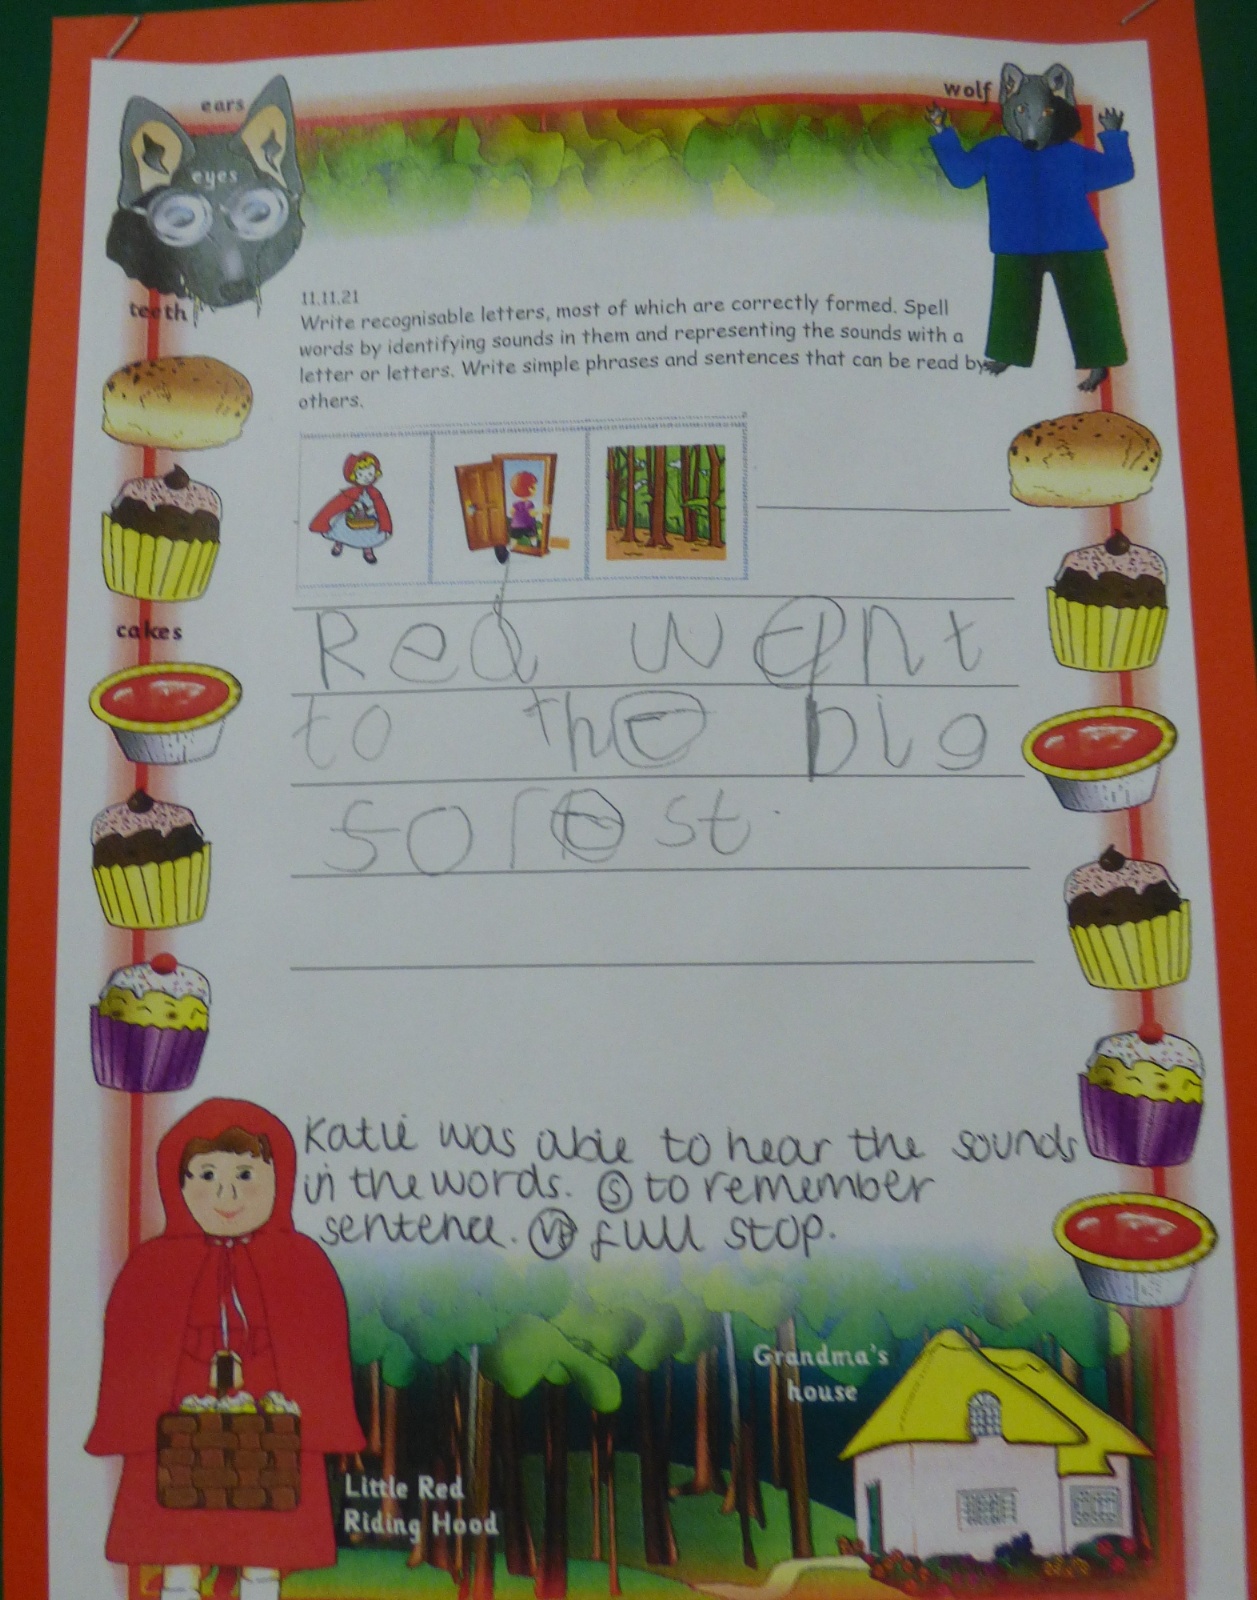 ears
wolf
eyes
teeth
11.11.21
Write recognisable letters, most of which are correctly formed. Spell
words by identifying sounds in them and representing the sounds with a
letter or letters. Write simple phrases and sentences that can be read by
others.
Red went
to the big
forest.
cakes
Katie was able to hear the sounds
in the words. Ⓢ to remember
sentence. VF full stop.
Grandma's
house
Little Red
Riding Hood